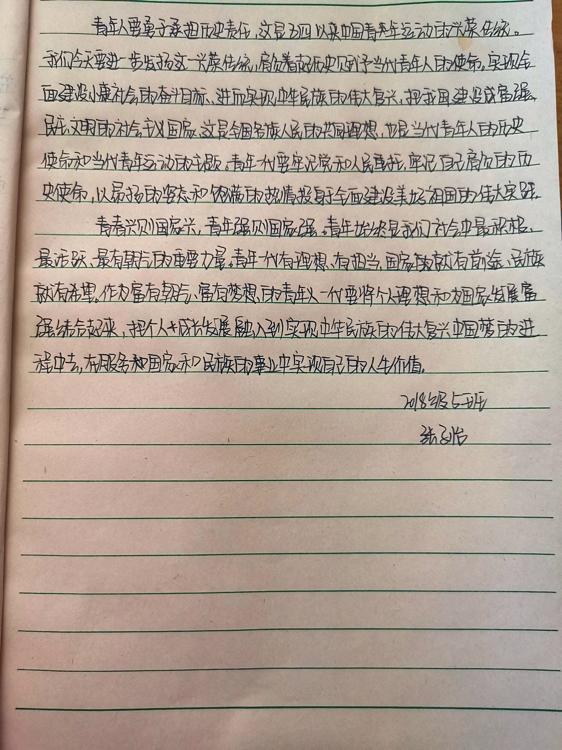 青年人要勇于承担历史责任，这是五四以来中国青年运动的光荣传统。
我们今天要进一步发扬这一光荣传统，肩负着起历史赋予当代青年人的使命，实现全
面建设小康社会的奋斗目标、进而实现中华民族的伟大复兴，把我国建设成富强、
民主、文明的社会主义国家。这是全国各族人民的共同理想，也是当代青年人的历史
使命和当代青年运动的主题。青年一代要牢记党和人民重托，牢记自己肩负的历
史使命，以昂扬的姿态和饱满的热情投身于全面建设美好祖国的伟大实践。
青春兴则国家兴，青年强则国家强。青年始终是我们社会中最积极、
最活跃、最有朝气的重要力量。青年一代有理想、有担当，国家就有前途、民族
就有希望。作为富有朝气、富有梦想的青年人一代要将个人理想和为国家发展富
强结合起来，把个人成长发展融入到实现中华民族的伟大复兴中国梦的进
程中去，在服务和国家和民族的事业中实现自己的人生价值。
2018级5班